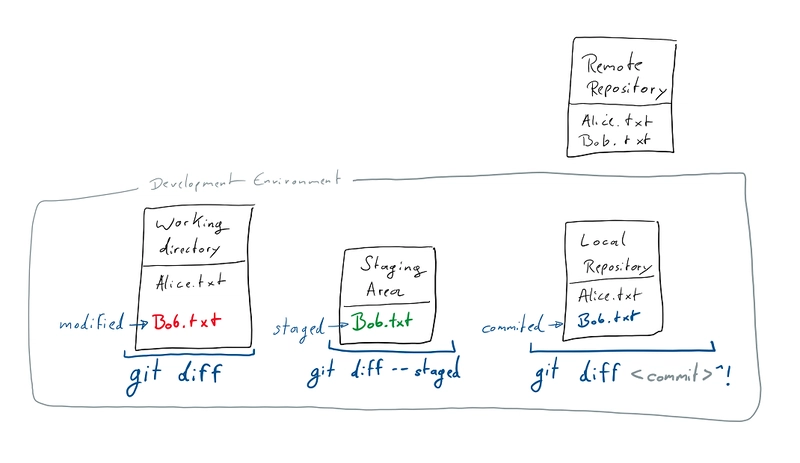 Remote
Repository
Alice.txt
Bob.txt
Development Environment
Working
directory
Alice.txt
modified → Bob.txt
git diff
Staging
Area
staged → Bob.txt
git diff -- staged
Local
Repository
Alice.txt
commited → Bob.txt
git diff <commit>^!